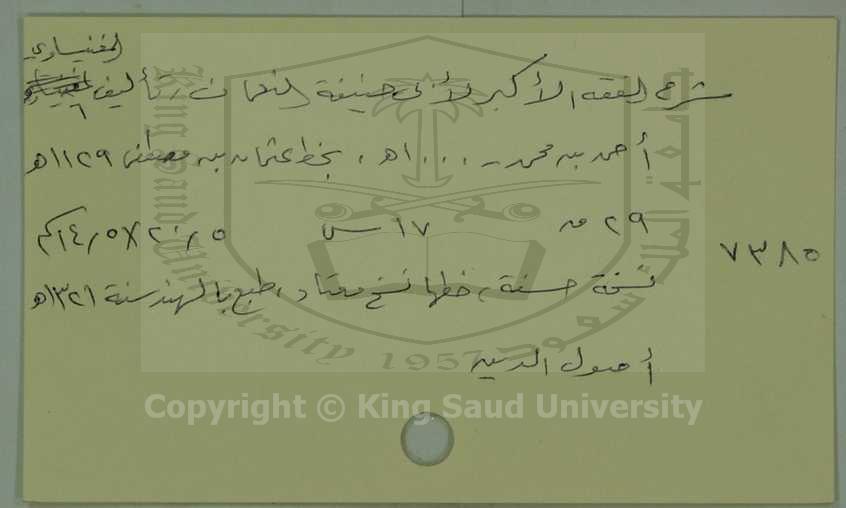 المغنيساوي
شرح الفقه الأكبر لأبي حنيفة النعمان، تأليف
أحمد بن محمد - ١٠٠٠هـ، بخط عثمان بن مصطفى ١١٢٩هـ
٢٩ ق ١٧ س ٢٠٫٥×١٤٫٥سم
٧٣٨٥
نسخة حسنة، خطها نسخ معتاد، طبع بالهند سنة ١٣٢١هـ
أصول الدين
King Saud University
1957
جامعة الملك سعود
Copyright © King Saud University